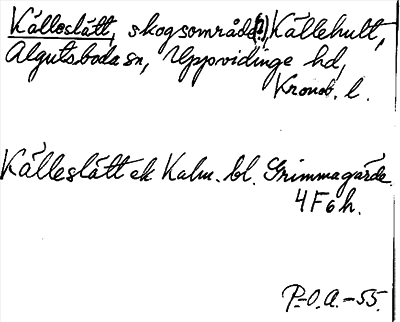 Källeslätt, skogsområde(?), Källehult,
Algutsboda sn, Uppvidinge hd,
Kronob. l.
Källeslätt ek Kalm. bl. Grimmagärde
4F6h.
P.-O.A.-55.